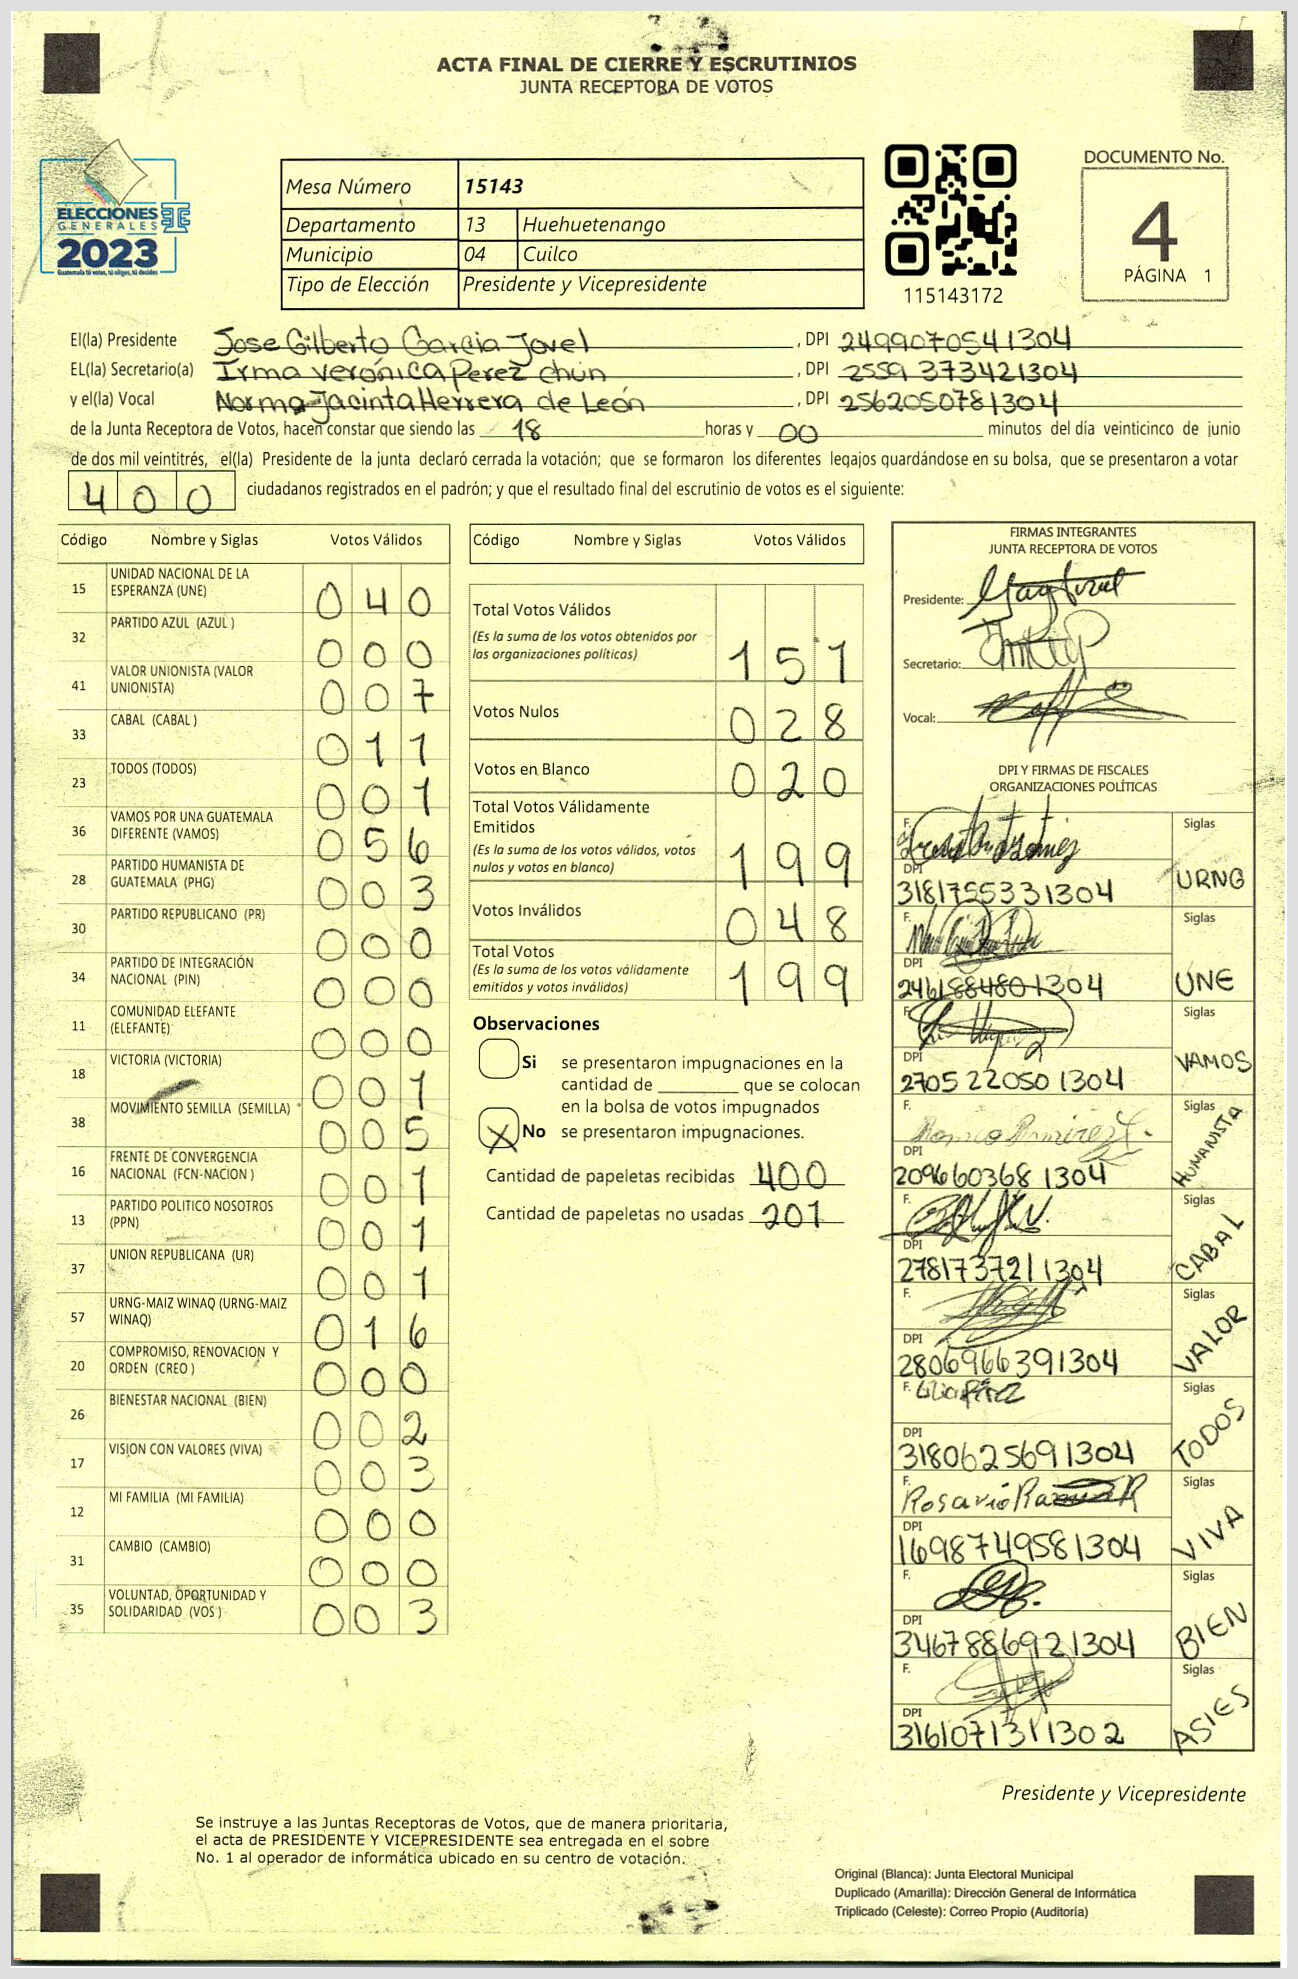 ACTA FINAL DE CIERRE Y ESCRUTINIOS
JUNTA RECEPTORA DE VOTOS
ELECCIONES
GENERALES
2023
Guatemala tú votas, tú eliges, tú decides
Mesa Número 15143
Departamento 13 Huehuetenango
Municipio 04 Cuilco
Tipo de Elección Presidente y Vicepresidente
115143172
DOCUMENTO No.
4
PÁGINA 1
El(la) Presidente Jose Gilberto Garcia Jovel, DPI 2499070541304
EL(la) Secretario(a) Irma Verónica Perez chun, DPI 2559 373421304
y el(la) Vocal Norma Jacinta Herrera de León, DPI 2562050781304
de la Junta Receptora de Votos, hacen constar que siendo las 18 horas y 00 minutos del día veinticinco de junio
de dos mil veintitrés, el(la) Presidente de la junta declaró cerrada la votación; que se formaron los diferentes legajos guardándose en su bolsa, que se presentaron a votar
400 ciudadanos registrados en el padrón; y que el resultado final del escrutinio de votos es el siguiente:
Código Nombre y Siglas Votos Válidos
15 UNIDAD NACIONAL DE LA ESPERANZA (UNE) 040
32 PARTIDO AZUL (AZUL ) 000
41 VALOR UNIONISTA (VALOR UNIONISTA) 007
33 CABAL (CABAL ) 011
23 TODOS (TODOS) 001
36 VAMOS POR UNA GUATEMALA DIFERENTE (VAMOS) 056
28 PARTIDO HUMANISTA DE GUATEMALA (PHG) 003
30 PARTIDO REPUBLICANO (PR) 000
34 PARTIDO DE INTEGRACIÓN NACIONAL (PIN) 000
11 COMUNIDAD ELEFANTE (ELEFANTE) 000
18 VICTORIA (VICTORIA) 001
38 MOVIMIENTO SEMILLA (SEMILLA) 005
16 FRENTE DE CONVERGENCIA NACIONAL (FCN-NACION ) 001
13 PARTIDO POLITICO NOSOTROS (PPN) 001
37 UNION REPUBLICANA (UR) 001
57 URNG-MAIZ WINAQ (URNG-MAIZ WINAQ) 016
20 COMPROMISO, RENOVACION Y ORDEN (CREO ) 000
26 BIENESTAR NACIONAL (BIEN) 002
17 VISION CON VALORES (VIVA) 003
12 MI FAMILIA (MI FAMILIA) 000
31 CAMBIO (CAMBIO) 000
35 VOLUNTAD, OPORTUNIDAD Y SOLIDARIDAD (VOS ) 003
Código Nombre y Siglas Votos Válidos
Total Votos Válidos
(Es la suma de los votos obtenidos por
las organizaciones políticas) 151
Votos Nulos 028
Votos en Blanco 020
Total Votos Válidamente
Emitidos
(Es la suma de los votos válidos, votos
nulos y votos en blanco) 199
Votos Inválidos 048
Total Votos
(Es la suma de los votos válidamente
emitidos y votos inválidos) 199
Observaciones
Si se presentaron impugnaciones en la
cantidad de ________ que se colocan
en la bolsa de votos impugnados
X No se presentaron impugnaciones.
Cantidad de papeletas recibidas 400
Cantidad de papeletas no usadas 201
FIRMAS INTEGRANTES
JUNTA RECEPTORA DE VOTOS
Presidente:
Secretario:
Vocal:
DPI Y FIRMAS DE FISCALES
ORGANIZACIONES POLÍTICAS
F. Siglas
DPI
3181755331304 URNG
F. Siglas
DPI
2461884801304 UNE
F. Siglas
DPI
2705 22050 1304 VAMOS
F. Ramirez Siglas
DPI
209660368 1304 HUMANISTA
F. Siglas
DPI
2781737211304 CABAL
F. Siglas
DPI
2806966391304 VALOR
F. Siglas
DPI
3180625691304 TODOS
F. Rosario Siglas
DPI
1698749581304 VIVA
F. Siglas
DPI
3467886921304 BIEN
F. Siglas
DPI
3161071311302 ASIES
Presidente y Vicepresidente
Se instruye a las Juntas Receptoras de Votos, que de manera prioritaria,
el acta de PRESIDENTE Y VICEPRESIDENTE sea entregada en el sobre
No. 1 al operador de informática ubicado en su centro de votación.
Original (Blanca): Junta Electoral Municipal
Duplicado (Amarilla): Dirección General de Informática
Triplicado (Celeste): Correo Propio (Auditoría)